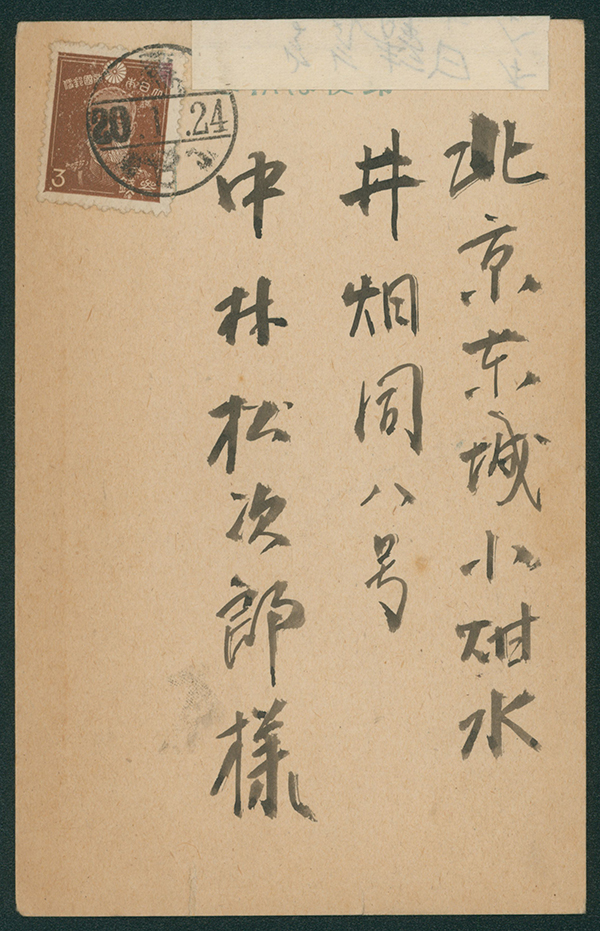 北京东城小坩水
井畑同八号
中林松次郎様
20.1.24
3